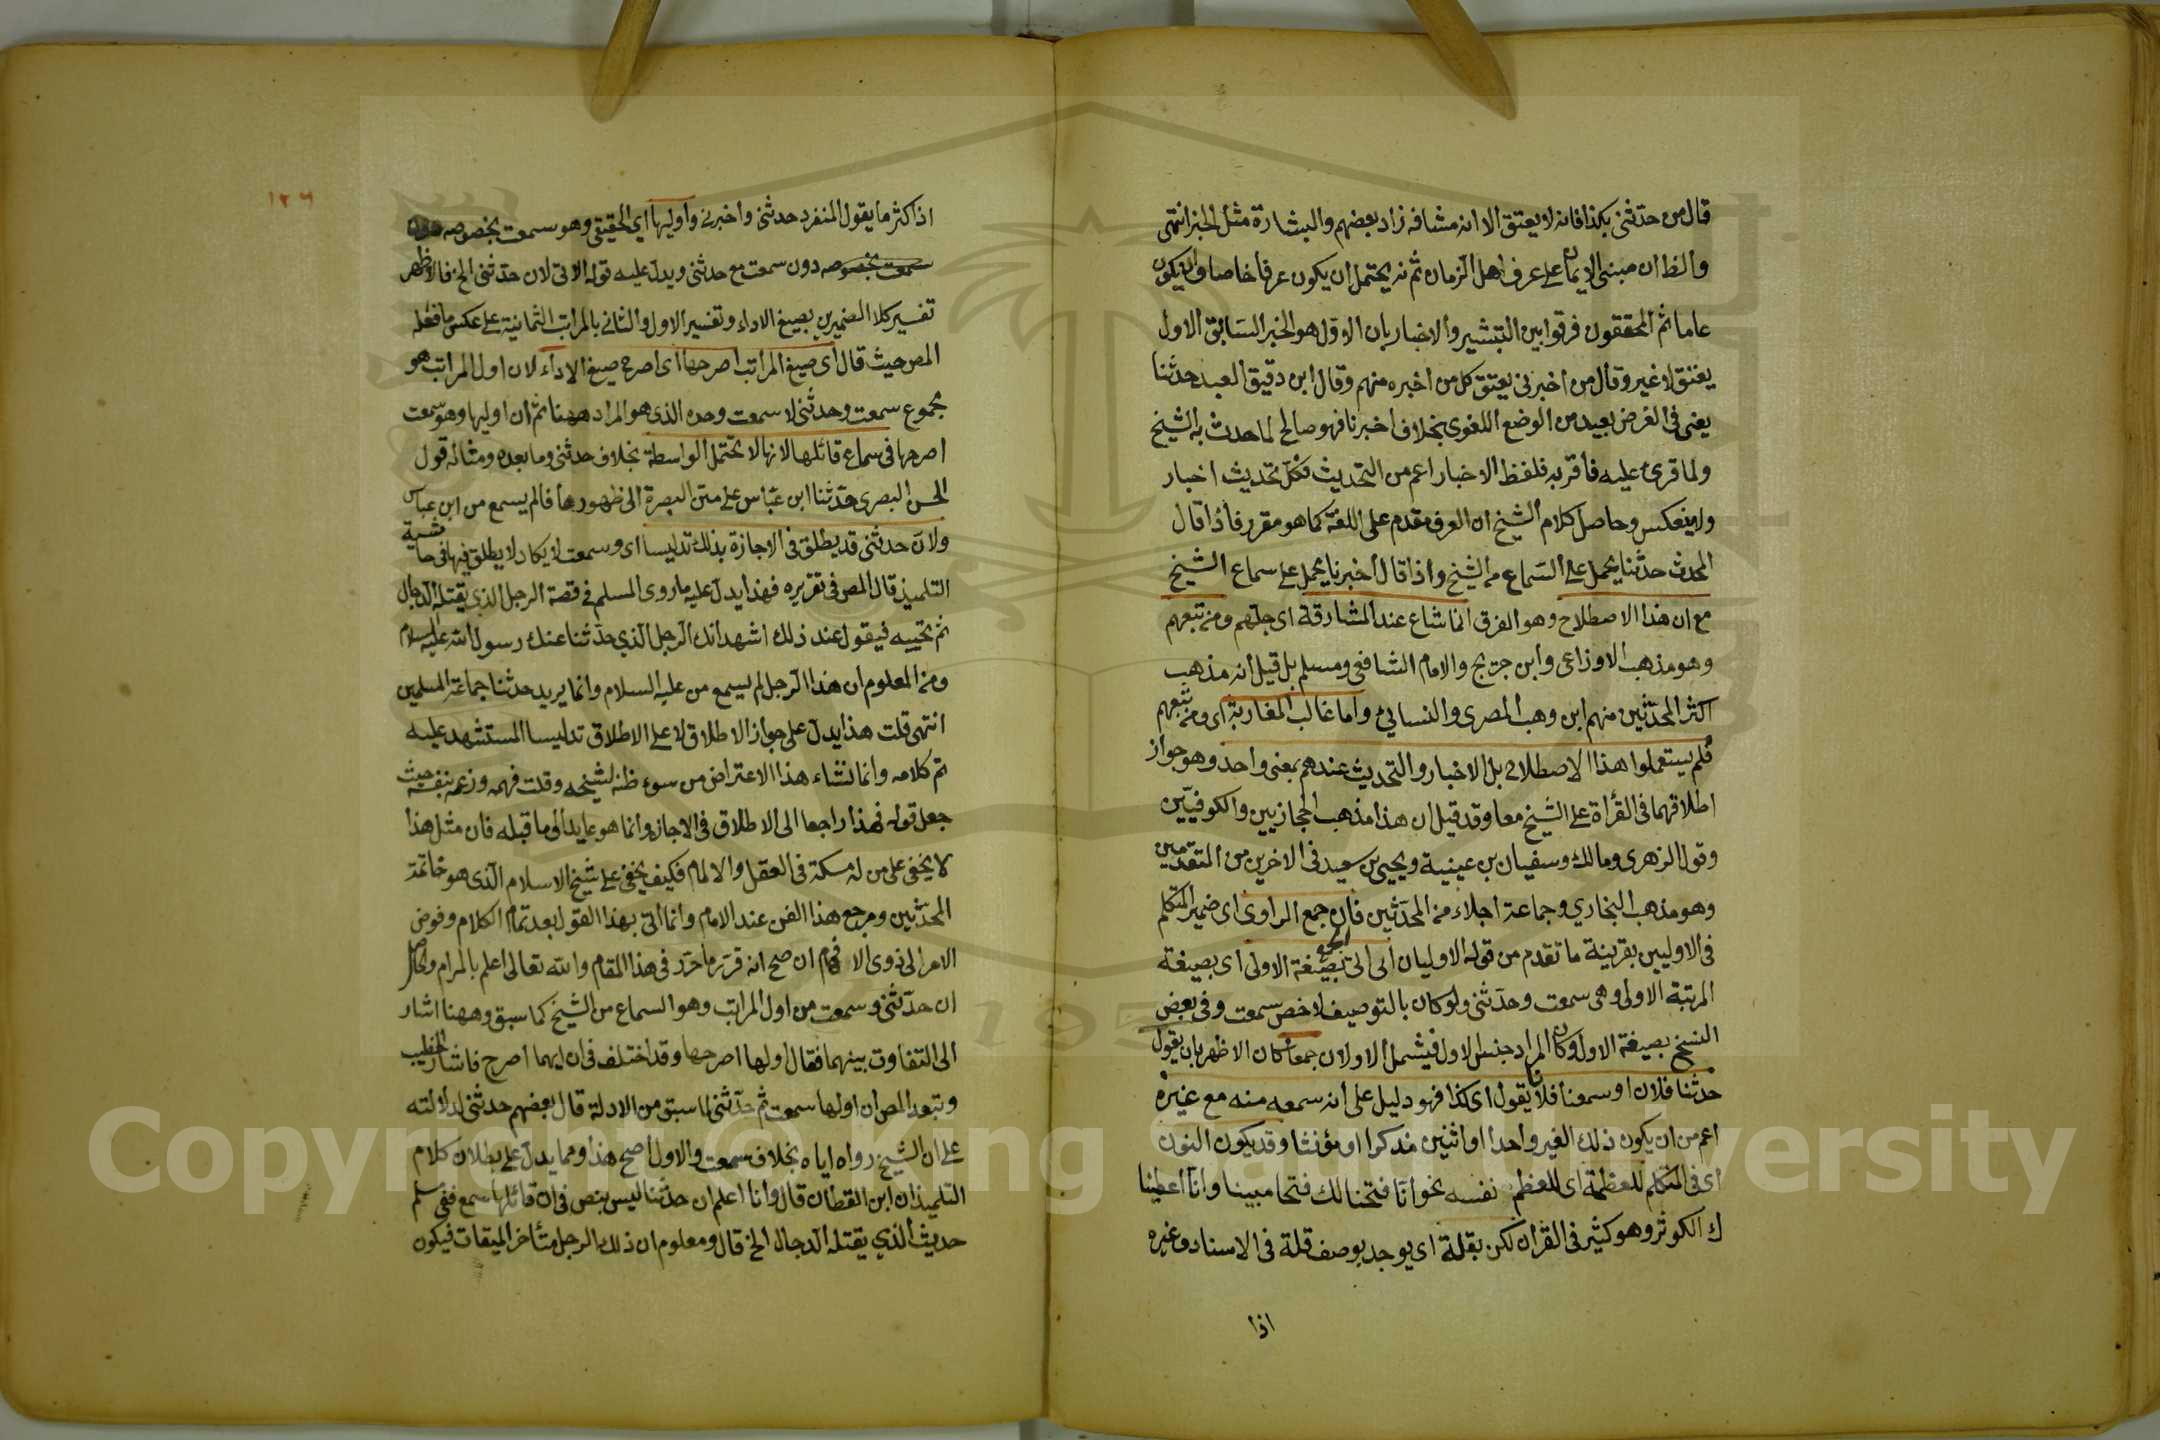 قال من حدثني بكذا فانه لا يعتق الا انه مشافه زاد بعضهم والبشارة مثل الخبر انتهى
والظ ان مبنى الايمان على عرف اهل الزمان ثم انه يحتمل ان يكون عرفا خاصا وان يكون
عاما ثم المحققون فرقوا بين التبشير والاخبار بان الاول هو الخبر السابق الاول
يعتق لا غير وقال من اخبرني يعتق كل من اخبره منهم وقال ابن دقيق العيد حدثنا
يعنى فى الغرض بعيد من الوضع اللغوى بخلاف اخبرنا فهو صالح لما حدث به الشيخ
ولما قرئ عليه فأقر به فلفظ الاخبار اعم من التحديث فكل تحديث اخبار
ولا ينعكس وحاصل كلام الشيخ ان العرف مقدم على اللغة كما هو مقرر فاذا قال
المحدث حدثنا يحمل على السماع من الشيخ واذا قال اخبرنا يحمل على سماع الشيخ
مع ان هذا الاصطلاح وهو الفرق انما شاع عند المشارقة اى جلهم ومن تبعهم
وهو مذهب الاوزاعى وابن جريج والامام الشافعى ومسلم بل قيل انه مذهب
اكثر المحدثين منهم ابن وهب المصرى والنسائي واما غالب المغاربة اى ومن تبعهم
فلم يستعملوا هذا الاصطلاح بل الاخبار والتحديث عندهم بمعنى واحد وهو جواز
اطلاقهما فى القرأة على الشيخ معا وقد قيل ان هذا مذهب الحجازيين والكوفيين
وقول الزهرى ومالك وسفيان بن عيينة ويحيى بن سعيد فى الاخرين من المتقدمين
وهو مذهب البخاري وجماعة اجلاء من المحدثين فان جمع الراوى اى ضمير المتكلم
فى الاوليين بقرينة ما تقدم من قوله الاوليان اى اتى بصيغة الجمع الاولى اى بصيغة
المرتبة الاولى وهى سمعت وحدثنى ولو كان بالتوصيف لاخص سمعت وفى بعض
النسخ بصيغة الاول وكان المراد جنس الاول فيشمل الاولان جمعا كان الاظهر بان يقول
حدثنا فلان او سمعنا فلانا يقول اى كذا فهو دليل على انه سمعه منه مع غيره
اعم من ان يكون ذلك الغير واحدا او اثنين مذكرا او مؤنثا وقد يكون النون
اى فى المتكلم للعظمة اى للعظم نفسه نحو انا فتحنا لك فتحا مبينا وانا اعطينا
ك الكوثر وهو كثير فى القرآن لكن بقلة اى يوجد بوصف قلة فى الاسناد وغيره
اذا
١٢٦
اذ اكثر ما يقول المنفرد حدثنى واخبرنى واوليها اي الحقيقى وهو سمعت بخصوصه
سمعت بخصوصه دون سمعت مع حدثنى ويدل عليه قوله الاتى لان حدثنى الخ فالاظهر
تفسير كلا الضميرين بصيغ الاداء وتفسير الاول والثانى بالمراتب الثمانية على عكس ما فعله
المص حيث قال اى صيغ المراتب اصرحها اى اصرح صيغ الاداء لان اول المراتب هو
مجموع سمعت وحدثنى لا سمعت وحده الذى هو المراد ههنا ثم ان اوليها وهو سمعت
اصرحها فى سماع قائلها لانها لا تحتمل الواسطة بخلاف حدثنى وما بعده ومثاله قول
الحسن البصرى حدثنا ابن عباس على متن البصرة الى ظهورها فالم يسمع من ابن عباس
ولان حدثنى قد يطلق فى الاجازة بذلك تدليسا اى وسمعت لا يكاد لا يطلق فيها فى حاشية
التلميذ قال المص فى تقريره فهذا يدل عليه ما روى المسلم فى قصة الرجل الذى يقتله الدجال
ثم يحييه فيقول عند ذلك اشهد انك الرجل الذي حدثنا عنك رسول الله عليه السلام
ومن المعلوم ان هذا الرجل لم يسمع من عليه السلام وانما يريد حدثنا جماعة المسلمين
انتهى قلت هذا يدل على جواز الاطلاق لا على الاطلاق تدليسا المستشهد عليه
تم كلامه وانما نشاء هذا الاعتراض من سوء ظنه لشيخه وقلت فهمه وزعمه بنفسه حيث
جعل قوله فهذا راجعا الى الاطلاق فى الاجازة وانما هو عايد الى ما قبله فان مثل هذا
لا يخفى على من له مسكة فى العقل والالمام فكيف يخفى على شيخ الاسلام الذى هو خاتمة
المحدثين ومرجع هذا الفن عند الامام وانما اتى بهذا القول بعد تمام الكلام وفوض
الامر الى ذوى الافهام ان صح انه قرر ما حرر فى هذا المقام والله تعالى اعلم بالمرام والحاصل
ان حدثنى وسمعت من اول المراتب وهو السماع من الشيخ كما سبق وههنا اشار
الى التفاوت بينهما فقال اولها اصرحها وقد اختلف فى ان ايهما اصرح فاشار الخطيب
وتبعه المص ان اولها سمعت ثم حدثنى لما سبق من الادلة قال بعضهم حدثنى لدلالته
على ان الشيخ رواه اياه بخلاف سمعت والاول اصح هذا ومما يدل على بطلان كلام
التلميذ ان ابن القطان قال وانا اعلم ان حدثنا ليس بنص فى ان قائلها سمع ففى مسلم
حديث الذي يقتله الدجال الخ قال ومعلوم ان ذلك الرجل متأخر الميقات فيكون
Copyright © King Saud University